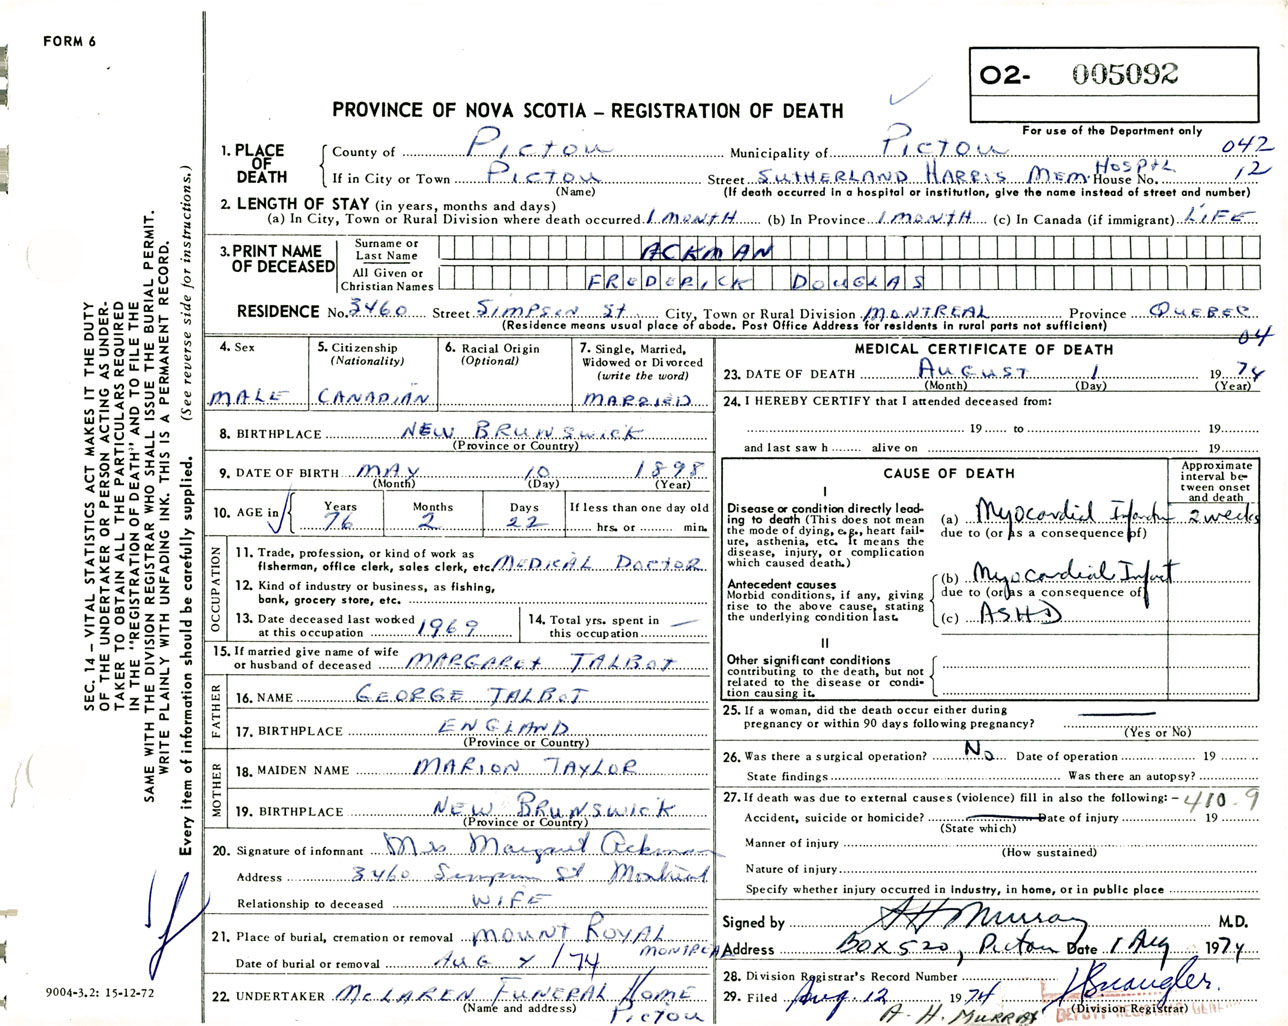 FORM 6
O2- 005092
PROVINCE OF NOVA SCOTIA – REGISTRATION OF DEATH
For use of the Department only
1. PLACE OF DEATH
County of PICTOU Municipality of PICTOU 042
If in City or Town PICTOU Street SUTHERLAND HARRIS MEM. HOSPTL House No. 12
(Name) (If death occurred in a hospital or institution, give the name instead of street and number)
2. LENGTH OF STAY (in years, months and days)
(a) In City, Town or Rural Division where death occurred 1 MONTH (b) In Province 1 MONTH (c) In Canada (if immigrant) LIFE
3. PRINT NAME OF DECEASED
Surname or Last Name ACKMAN
All Given or Christian Names FREDERICK DOUGLAS
RESIDENCE No. 3460 Street SIMPSON St. City, Town or Rural Division MONTREAL Province QUEBEC
(Residence means usual place of abode. Post Office Address for residents in rural parts not sufficient)
04
4. Sex MALE
5. Citizenship (Nationality) CANADIAN
6. Racial Origin (Optional)
7. Single, Married, Widowed or Divorced (write the word) MARRIED
8. BIRTHPLACE NEW BRUNSWICK
(Province or Country)
9. DATE OF BIRTH MAY 10 1898
(Month) (Day) (Year)
10. AGE in Years 76 Months 2 Days 22 If less than one day old hrs. or min.
OCCUPATION
11. Trade, profession, or kind of work as fisherman, office clerk, sales clerk, etc. MEDICAL DOCTOR
12. Kind of industry or business, as fishing, bank, grocery store, etc.
13. Date deceased last worked at this occupation 1969
14. Total yrs. spent in this occupation —
15. If married give name of wife or husband of deceased MARGARET TALBOT
FATHER
16. NAME GEORGE TALBOT
17. BIRTHPLACE ENGLAND
(Province or Country)
MOTHER
18. MAIDEN NAME MARION TAYLOR
19. BIRTHPLACE NEW BRUNSWICK
(Province or Country)
20. Signature of informant Mrs Margaret Ackman
Address 3460 Simpson St Montreal
Relationship to deceased WIFE
21. Place of burial, cremation or removal MOUNT ROYAL MONTREAL
Date of burial or removal AUG /74
22. UNDERTAKER McLAREN FUNERAL HOME
(Name and address) PICTOU
MEDICAL CERTIFICATE OF DEATH
23. DATE OF DEATH AUGUST 1 1974
(Month) (Day) (Year)
24. I HEREBY CERTIFY that I attended deceased from:
19 to 19
and last saw h alive on 19
CAUSE OF DEATH
Approximate interval between onset and death
I
Disease or condition directly leading to death (This does not mean the mode of dying, e.g., heart failure, asthenia, etc. It means the disease, injury, or complication which caused death.)
(a) Myocardial Infarction 2 weeks
due to (or as a consequence of)
Antecedent causes
Morbid conditions, if any, giving rise to the above cause, stating the underlying condition last.
(b) Myocardial Infarct
due to (or as a consequence of)
(c) ASHD
II
Other significant conditions contributing to the death, but not related to the disease or condition causing it.
25. If a woman, did the death occur either during pregnancy or within 90 days following pregnancy? —
(Yes or No)
26. Was there a surgical operation? No Date of operation 19
State findings Was there an autopsy?
27. If death was due to external causes (violence) fill in also the following: – 410.9
Accident, suicide or homicide? Date of injury 19
(State which)
Manner of injury
(How sustained)
Nature of injury
Specify whether injury occurred in industry, in home, or in public place
Signed by AH Murray M.D.
Address BOX 520, Pictou Date 1 Aug 1974
28. Division Registrar's Record Number
29. Filed Aug 12 1974
(Division Registrar)
A. H. MURRAY
DEPUTY REGISTRAR GENERAL
SEC. 14 – VITAL STATISTICS ACT MAKES IT THE DUTY
OF THE UNDERTAKER OR PERSON ACTING AS UNDER-
TAKER TO OBTAIN ALL THE PARTICULARS REQUIRED
IN THE "REGISTRATION OF DEATH" AND TO FILE THE
SAME WITH THE DIVISION REGISTRAR WHO SHALL ISSUE THE BURIAL PERMIT.
WRITE PLAINLY WITH UNFADING INK. THIS IS A PERMANENT RECORD.
Every item of information should be carefully supplied. (See reverse side for instructions.)
9004-3.2: 15-12-72